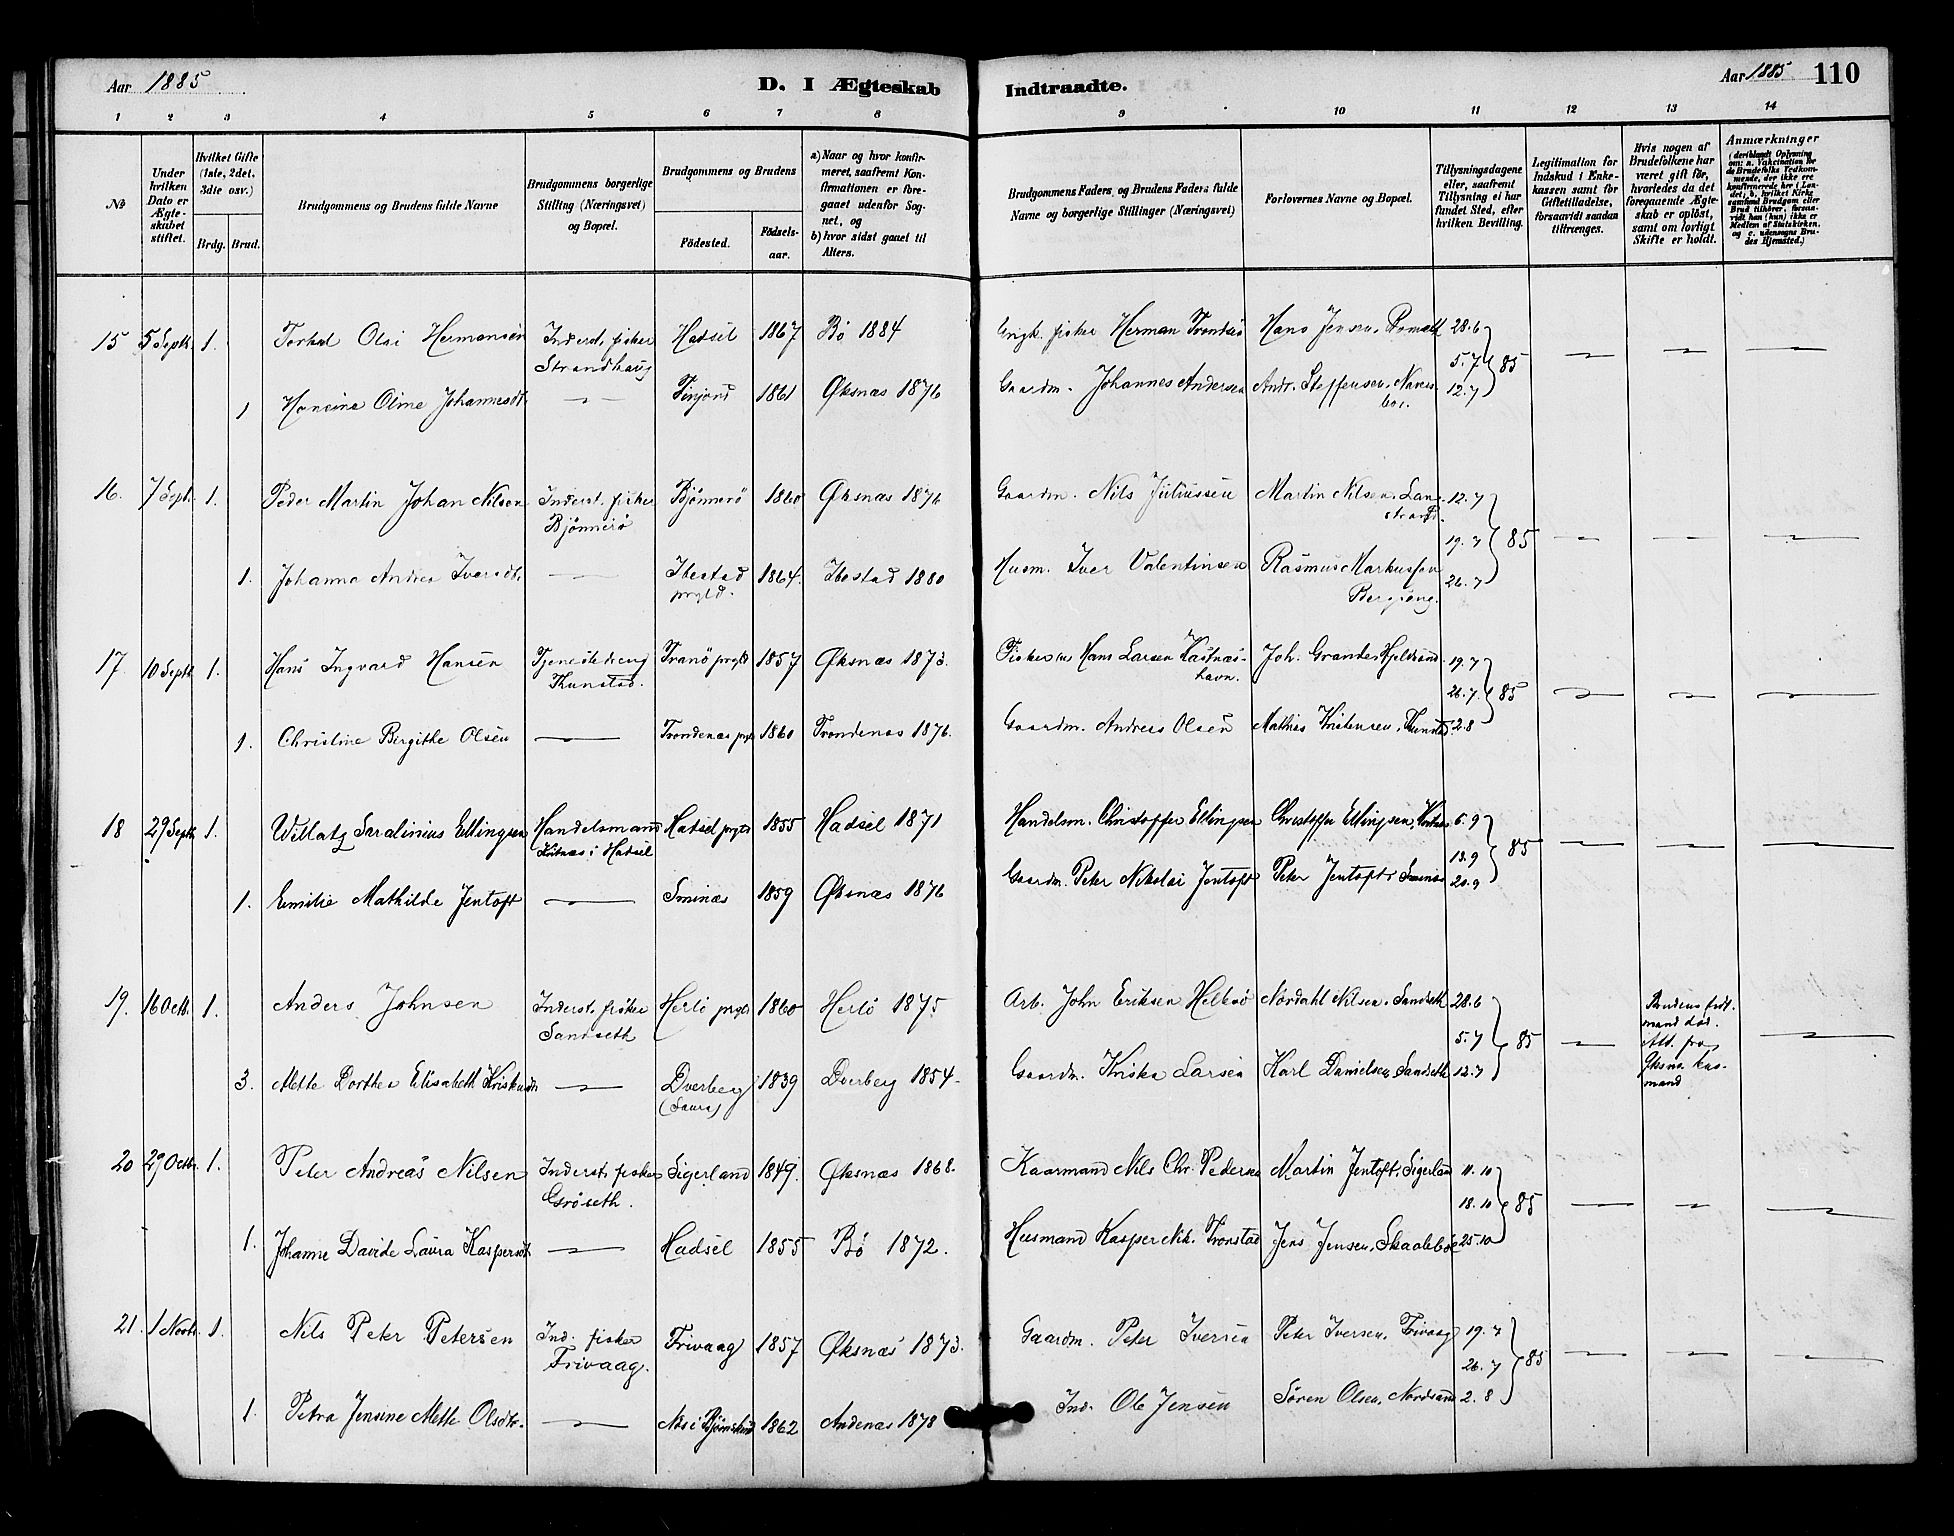 Aar 1885
D. I Ægteskab
Indtraadte.
Aar 1885 110
1 2 3 4 5 6 7 8 9 10 11 12 13 14
No
Under hvilken Dato er Ægteskabet stiftet.
Hvilket Gifte (1ste, 2det, 3die osv.)
Brdg. Brud.
Brudgommens og Brudens fulde Navne
Brudgommens borgerlige Stilling (Næringsvei) og Bopæl.
Brudgommens og Brudens
Födested. Födselsaar.
a) Naar og hvor konfirmeret, saafremt Konfirmationen er foregaaet udenfor Sognet, og
b) hvor sidst gaaet til Alters.
Brudgommens Faders og Brudens Faders fulde Navne og borgerlige Stillinger (Næringsvei)
Forlovernes Navne og Bopæl.
Tillysningsdagene eller, saafremt Tillysning ei har fundet Sted, efter hvilken Bevilling.
Legitimation for Indskud i Enkekassen samt for Giftetilladelse, forsaavidt saadan tiltrænges.
Hvis nogen af Brudefolkene har været gift før, hvorledes da det foregaaende Ægteskab er opløst, samt om lovligt Skifte er holdt.
Anmærkninger
15 5 Sept. 1. Torkel Olai Hermansen Inderst, fisker Strandhaug Hadsel 1867 Bö 1884 Herman Hans Jensen, 28.6
5.7 } 85
1 Hansine Oline Johannesdt. Tinjord 1861 Øksnæs 1876 Gaardm. Johannes Andersen Andr. Steffensen, 12.7
16. 7 Sept. 1. Peder Martin Johan Nilsen Inderst, fisker Bjönnerö Bjönnerö 1860 Øksnæs 1876 Gaardm. Nils Juliussen Martin Nilsen, 12.7
19.7 } 85
1. Johanna Andrea Iversdt. Ibestad prgld. 1864. Ibestad 1880 Husm. Iver Valentinsen Rasmus Markussen 26.7
17. 10 Sept. 1. Hans Ingvard Hansen Tjenestedreng Kunstad. Tranö prgld 1857 Øksnæs 1873. Fisker Hans Larsen Kastnæshavn. Joh. Grander, 19.7
26.7. } 85
1. Christine Birgithe Olsen Trondenæs prgld 1860 Trondenæs 1876. Gaardm. Andreas Olsen Mathias Kristensen, Kunstad 2.8
18 29 Sept. 1. Sæalinius Ellingsen Handelsmand i Hadsel Hadsel prgld 1855 Hadsel 1871 Handelsm. Christoffer Ellingsen Christoffer Ellingsen, 6.9
13.9 } 85
1. Emilie Mathilde Jentoft Sminæs 1859 Øksnæs 1876 Gaardm. Peter Nikolai Jentoft Peter Jentoft, Sminæs 20.9
19. 16 Octb. 1. Anders Johnsen Inderst, fisker Sandseth Herlö prgld 1860 Herlö 1875 Arb. John Eriksen Nordahl Nilsen, Sandseth 28.6
5.7 } 85
3. Mette Dorthea Elisabeth Dverberg 1839 Dverberg 1854. Gaardm. Larsen Karl Danielsen, Sandseth 12.7
20 29 Octb. 1. Peter Andreas Nilsen Inderst, fisker Gröseth. Sigerland 1849. Øksnæs 1868. Kaarmand Nils Chr. Pedersen Martin Jentoft, Sigerland 11.10
18.10 } 85
1. Johanne Davide Laura Kaspersdt. Hadsel 1855 Bö 1872. Husmand Kasper Nik. Tronstad Jens Jensen, Skaaleböe 25.10
21. 1 Novb. 1. Nils Peter Petersen Ind. fisker Frivaag. Frivaag 1857 Øksnæs 1873. Gaardm. Peter Iversen Peter Iversen, Frivaag 19.7
26.7 } 85
1. Petra Jensine Mette Olsdtr. 1862 Andenæs 1878 Ind. Ole Jensen Sören Olsen, Nordsand 2.8